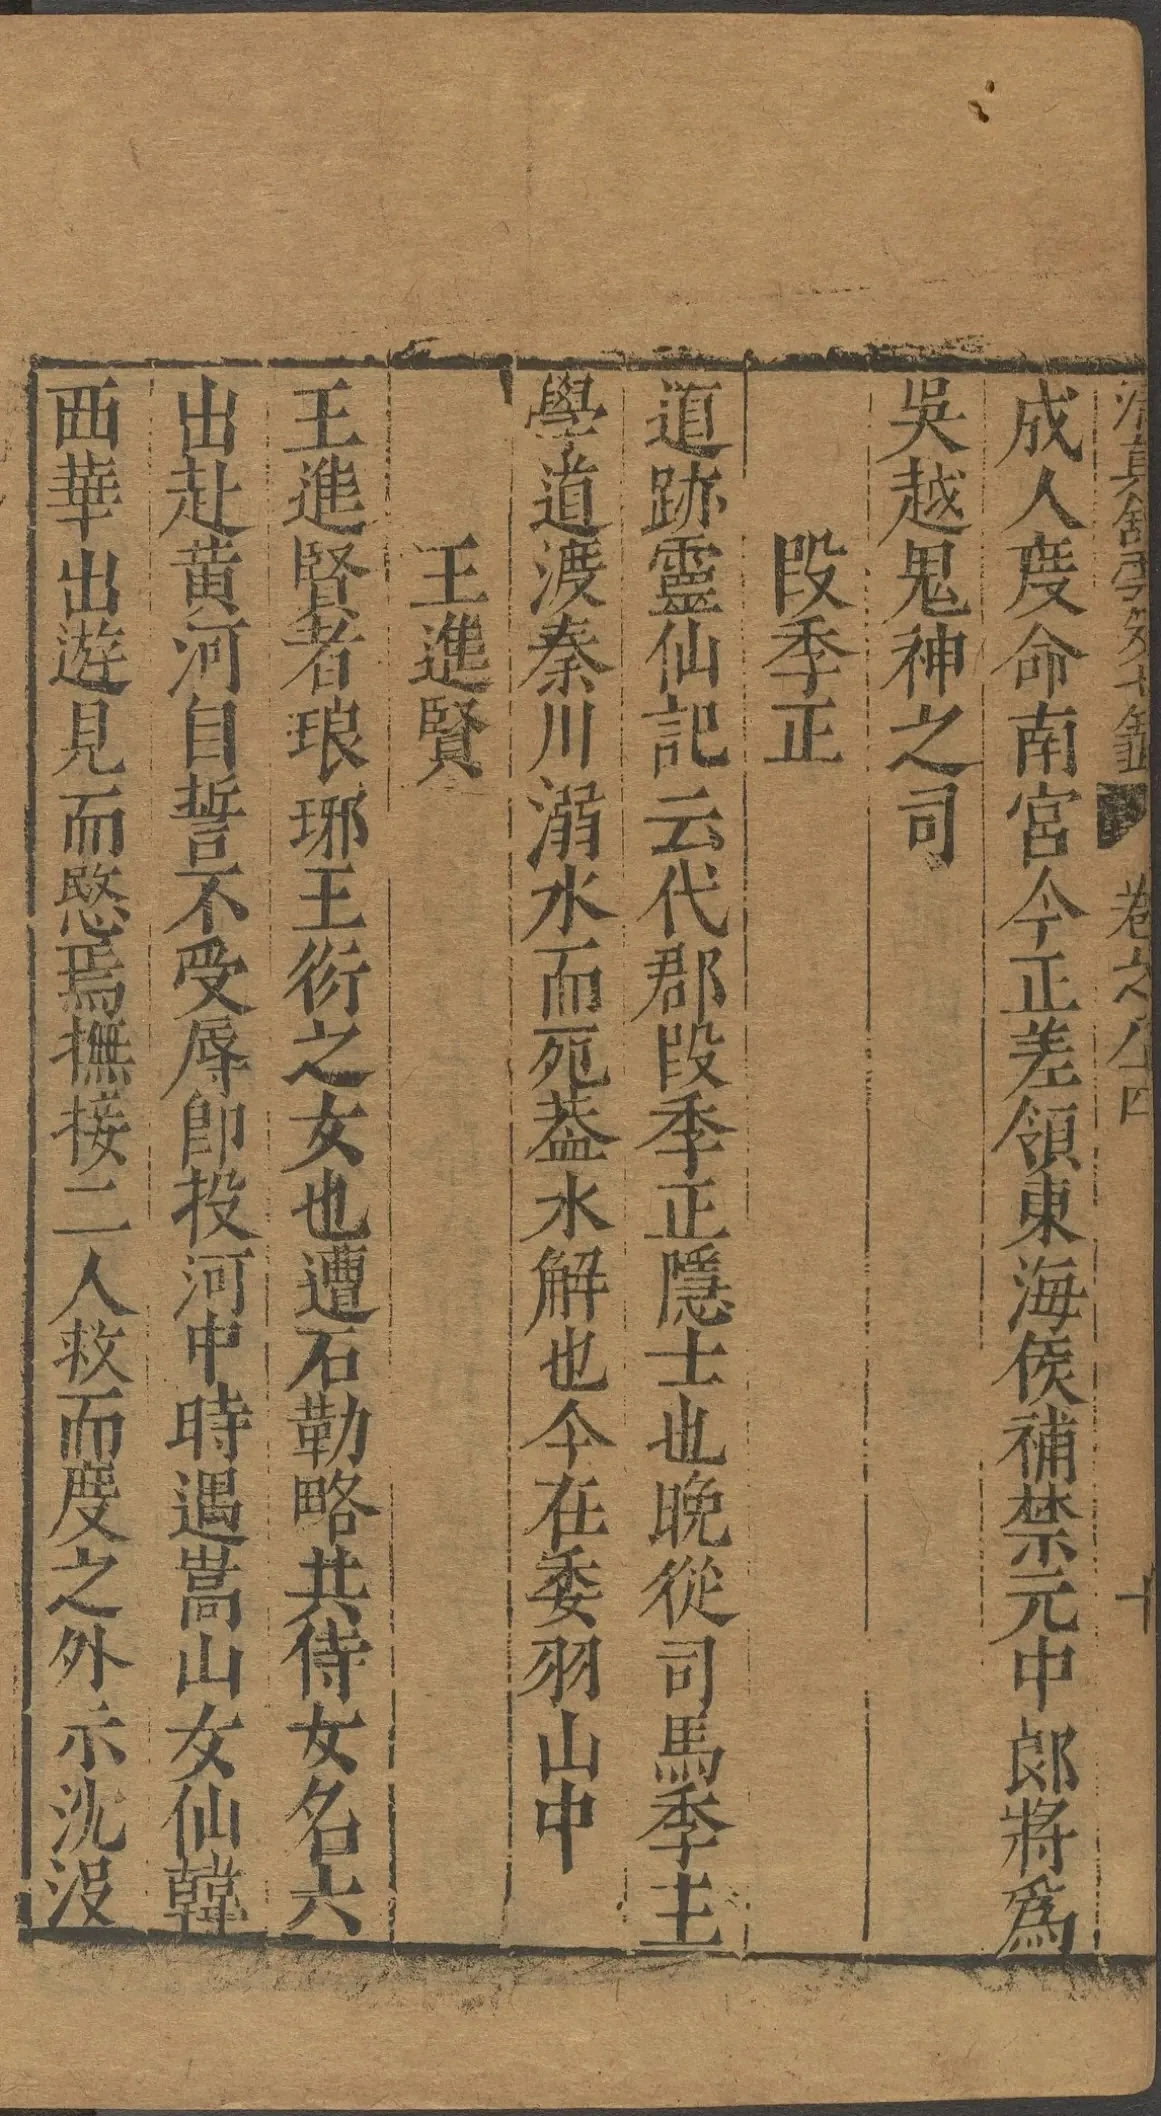 卷之八十四
十
成人度命南宮今正差領東海侯補禁元中郎將爲
吳越鬼神之司
段季正
道跡靈仙記云代郡段季正隱士也晚從司馬季主
學道渡秦川溺水而死葢水解也今在委羽山中
王進賢
王進賢者琅琊王衍之女也遭石勒略共侍女名六
出赴黄河自誓不受辱即投河中時遇嵩山女仙韓
西華出遊見而愍焉撫接二人救而度之外示沈沒